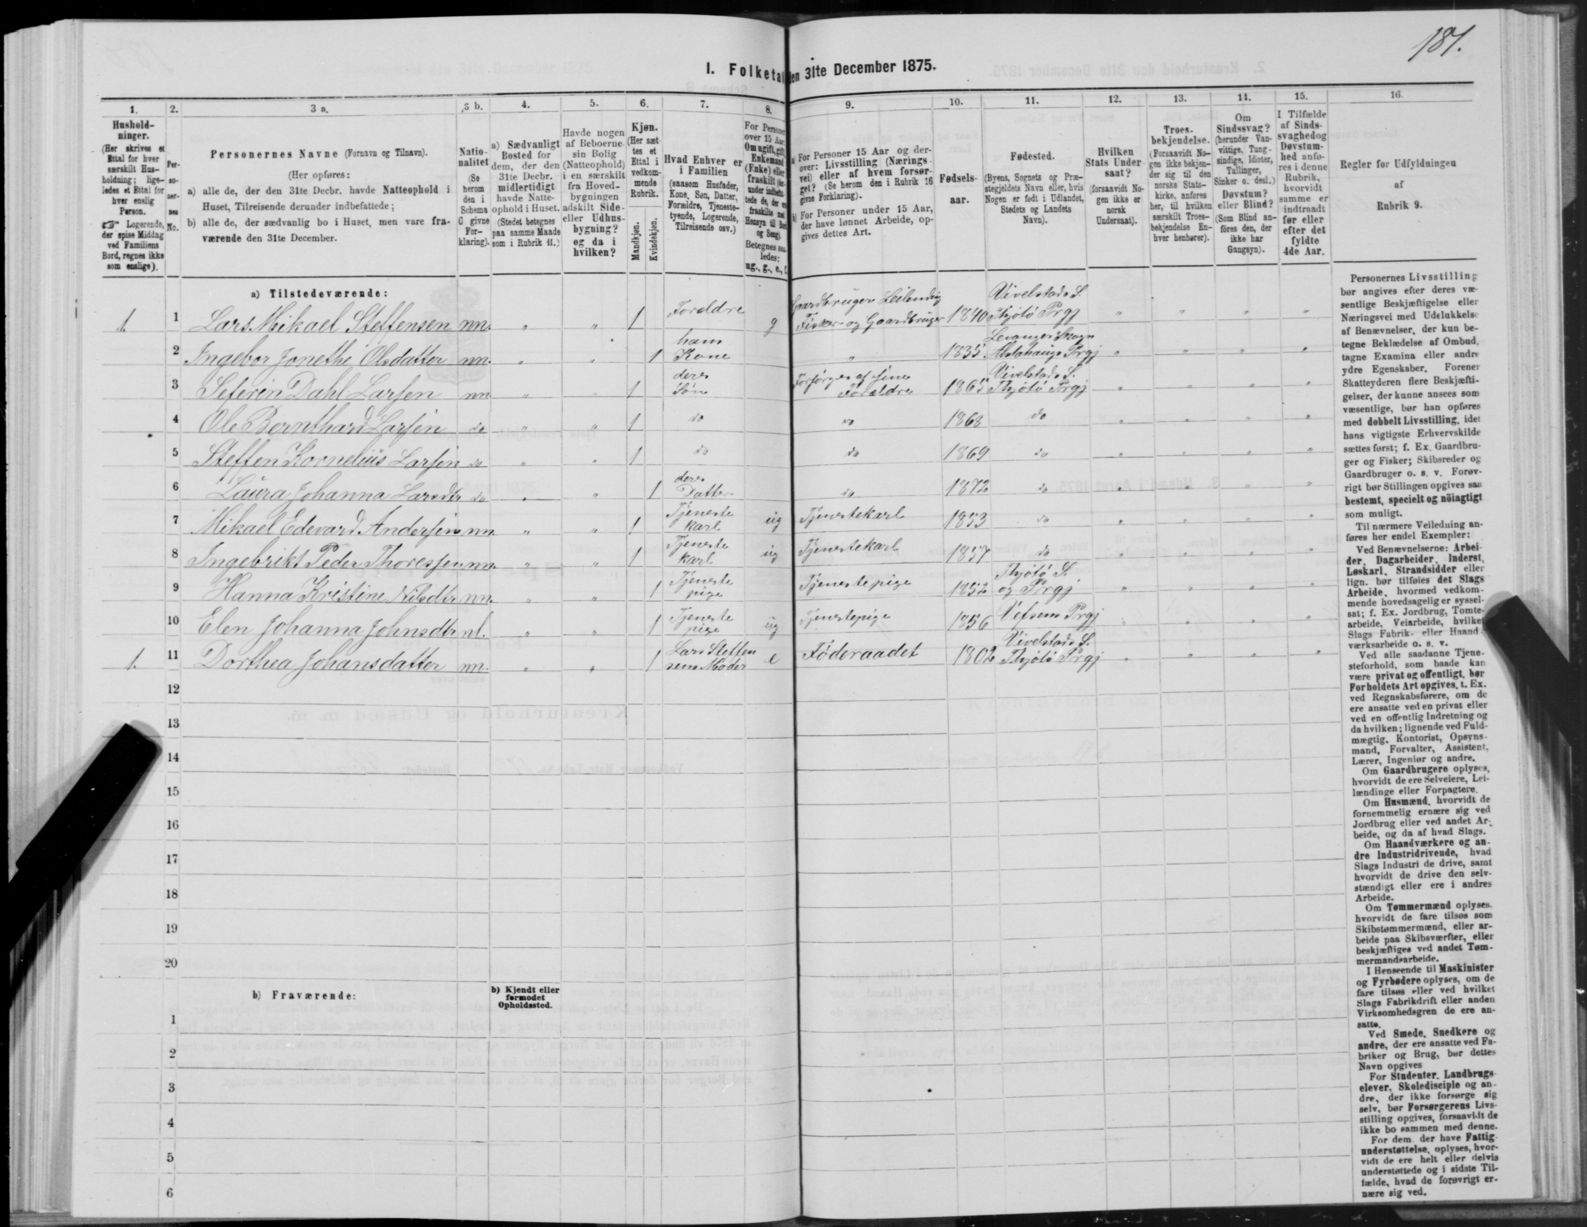 181.
I. Folketal den 31te December 1875.
1. 2. 3 a. 3 b. 4. 5. 6. 7. 8. 9. 10. 11. 12. 13. 14. 15. 16.
Hushold-
ninger.
(Her skrives et
Ettal for hver
særskilt Hus-
holdning; lige-
ledes et Ettal for
hver enslig
Person.
☞ Logerende,
der spise Middag
ved Familiens
Bord, regnes ikke
som enslige).
Per-
so-
ner-
nes
No.
Personernes Navne (Fornavn og Tilnavn).
(Her opføres:
a) alle de, der den 31te Decbr. havde Natteophold i
Huset, Tilreisende derunder indbefattede;
b) alle de, der sædvanlig bo i Huset, men vare fra-
værende den 31te December.
Natio-
nalitet
(Se
herom
den i
Schema
C givne
For-
klaring).
a) Sædvanligt
Bosted for
dem, der den
31te Decbr.
midlertidigt
havde Natte-
ophold i Huset.
(Stedet betegnes
paa samme Maade
som i Rubrik 11.)
Havde nogen
af Beboerne
sin Bolig
(Natteophold)
i en særskilt
fra Hoved-
bygningen
adskilt Side-
eller Udhus-
bygning?
og da i
hvilken?
Kjøn.
(Her sæt-
tes et
Ettal i
vedkom-
mende
Rubrik.
Mandkjøn.
Kvindekjøn.
Hvad Enhver er
i Familien
(saasom Husfader,
Kone, Søn, Datter,
Forældre, Tjeneste-
tyende, Logerende,
Tilreisende osv.)
For Personer
over 15 Aar:
Om ugift, gift,
Enkemand
(Enke) eller
fraskilt
Betegnes saa-
ledes:
ug., g., e., f.
a) For Personer 15 Aar og der-
over: Livsstilling (Nærings-
vei) eller af hvem forsør-
get? (Se herom den i Rubrik 16
givne Forklaring).
b) For Personer under 15 Aar,
der have lønnet Arbeide, op-
gives dettes Art.
Fødsels-
aar.
Fødested.
(Byens, Sognets og Præ-
stegjeldets Navn eller, hvis
Nogen er født i Udlandet,
Stedets og Landets
Navn).
Hvilken
Stats Under-
saat?
(forsaavidt No-
gen ikke er
norsk
Undersaat).
Troes-
bekjendelse.
(Forsaavidt No-
gen ikke bekjen-
der sig til den
norske Stats-
kirke, anføres
her, til hvilken
særskilt Troes-
bekjendelse En-
hver henhører).
Om
Sindssvag?
(herunder Van-
vittige, Tung-
sindige, Idioter,
Tallinger,
Sinker o. desl.)
Døvstum?
eller Blind?
(Som Blind an-
føres den, der
ikke har
Gangsyn).
I Tilfælde
af Sinds-
svaghed og
Døvstum-
hed anfø-
res i denne
Rubrik,
hvorvidt
samme er
indtraadt
før eller
efter det
fyldte
4de Aar.
Regler før Udfyldningen
af
Rubrik 9.
a) Tilstedeværende:
1 1 Lars Mikael Steffensen nn. " " 1 Foreldre g Gaardbruger Leilending Fisker og Gaardbruger 1840 Vivelstads S. Thjøtø Prgj " " " "
2 Ingebor Jonethe Olsdatter nn. " 1 hans Kone " 1835 Alstahaugs Prgj " " " "
3 Seferin Dahl Larsen nn. " " 1 deres Søn Forsørges af sine Forældre 1865 Vivelstads S. Thjøtø Prgj " " " "
4 Ole Bernthard Larsen do " " 1 do do 1868 do " " " "
5 Steffen Kornelius Larsen do " " 1 do do 1869 do " " " "
6 Laura Johanna Larsdtr do " " 1 deres Datter do 1872 do " " " "
7 Mikael Edevard Andersen nn. " " 1 Tjeneste karl ug Tjenestekarl 1853 do " " " "
8 Ingebrikt Peder Thoressen nn. " " 1 Tjeneste karl ug Tjenestekarl 1857 do " " " "
9 Hanna Kristine Nilsdtr nn. " " 1 Tjeneste pige Tjenestepige 1852 Thjøtø S. og Prgj " " " "
10 Elen Johanna Johnsdtr nl. " " 1 Tjeneste pige ug Tjenestepige 1856 Vefsens Prgj " " " "
1 11 Dorthea Johansdatter nn. " " 1 Lars Steffensens Moder e Føderaadet 1802 Vivelstads S. Thjøtø Prgj " " " "
12
13
14
15
16
17
18
19
20
b) Fraværende:
b) Kjendt eller
formodet
Opholdssted.
1
2
3
4
5
6
Personernes Livsstilling
bør angives efter deres væ-
sentlige Beskjæftigelse eller
Næringsvei med Udelukkelse
af Benævnelser, der kun be-
tegne Beklædelse af Ombud,
tagne Examina eller andre
ydre Egenskaber. Forener
Skatteyderen flere Beskjæfti-
gelser, der kunne ansees som
væsentlige, bør han opføres
med dobbelt Livsstilling, idet
hans vigtigste Erhvervskilde
sættes først; f. Ex. Gaardbru-
ger og Fisker; Skibsreder og
Gaardbruger o. s. v. Forøv-
rigt bør Stillingen opgives saa
bestemt, specielt og nöiagtigt
som muligt.
Til nærmere Veiledning an-
føres her endel Exempler:
Ved Benævnelserne: Arbei-
der, Dagarbeider, Inderst,
Løskarl, Strandsidder eller
lign. bør tilføies det Slags
Arbeide, hvormed vedkom-
mende hovedsagelig er syssel-
sat; f. Ex. Jordbrug, Tomte-
arbeide, Veiarbeide, hvilket
Slags Fabrik- eller Haand-
værksarbeide o. s. v.
Ved alle saadanne Tjene-
steforhold, som baade kan
være privat og offentligt, bør
Forholdets Art opgives, t. Ex.
ved Regnskabsførere, om de
ere ansatte ved en privat eller
ved en offentlig Indretning og
da hvilken; lignende ved Fuld-
mægtig, Kontorist, Opsyns-
mand, Forvalter, Assistent,
Lærer, Ingeniør og andre.
Om Gaardbrugere oplyses,
hvorvidt de ere Selveiere, Lei-
lændinge eller Forpagtere.
Om Husmænd, hvorvidt de
fornemmelig ernære sig ved
Jordbrug eller ved andet Ar-
beide, og da af hvad Slags.
Om Haandværkere og an-
dre Industridrivende, hvad
Slags Industri de drive, samt
hvorvidt de drive den selv-
stændigt eller ere i andres
Arbeide.
Om Tømmermænd oplyses,
hvorvidt de fare tilsøs som
Skibstømmermænd, eller ar-
beide paa Skibsværfter, eller
beskjæftiges ved andet Tøm-
mermandsarbeide.
I Henseende til Maskinister
og Fyrbødere oplyses, om de
fare tilsøs eller ved hvilket
Slags Fabrikdrift eller anden
Virksomhedsgren de ere an-
satte.
Ved Smede, Snedkere og
andre, der ere ansatte ved Fa-
briker og Brug, bør dettes
Navn opgives
For Studenter, Landbrugs-
elever, Skoledisciple og an-
dre, der ikke forsørge sig
selv, bør Forsørgerens Livs-
stilling opgives, forsaavidt de
ikke bo sammen med denne.
For dem, der have Fattig-
understøttelse, oplyses, hvor-
vidt de ere helt eller delvis
understøttede og i sidste Til-
fælde, hvad de forøvrigt er-
nære sig ved.